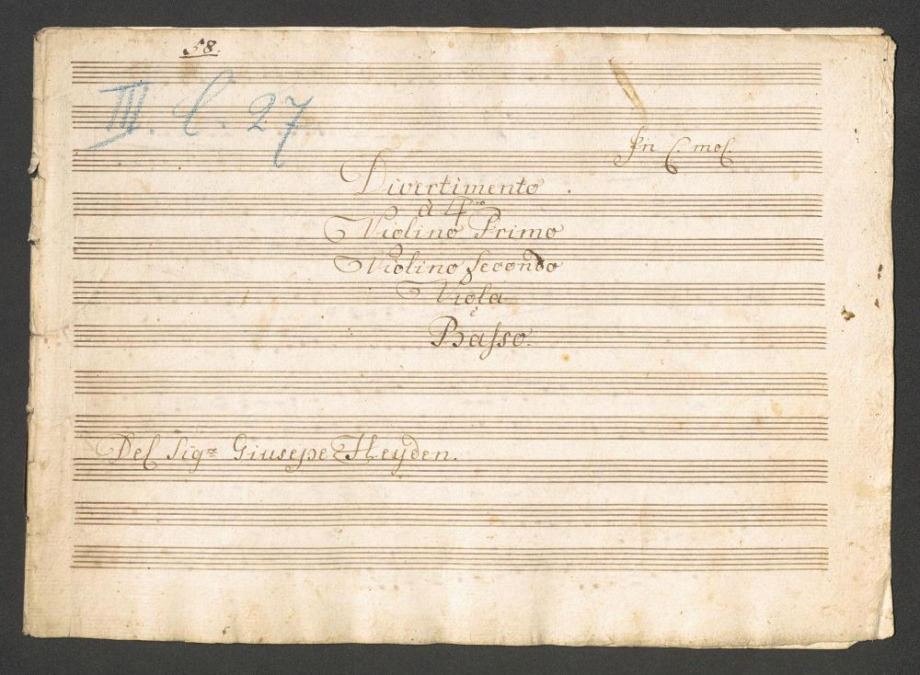 58.
III. C. 27
In C. mol.
Divertimento
à 4tro
Violino Primo
Violino Secondo
Viola
e
Basso.
Del Sigre Giusepe Heyden.